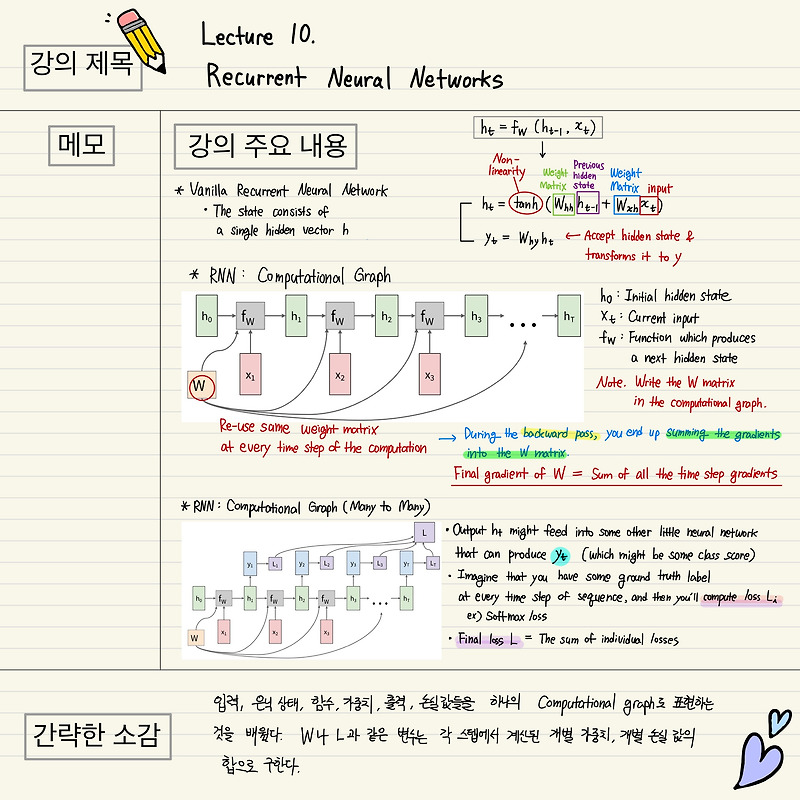 강의 제목
Lecture 10.
Recurrent Neural Networks
메모
강의 주요 내용
* Vanilla Recurrent Neural Network
• The state consists of
a single hidden vector h
h_t = f_W (h_{t-1}, x_t)
Non-
linearity
Weight
Matrix
Previous
hidden
state
Weight
Matrix
input
h_t = tanh (W_hh h_{t-1} + W_xh x_t)
y_t = W_hy h_t
← Accept hidden state &
transforms it to y
* RNN : Computational Graph
h0 f_W h1 f_W h2 f_W h3 ... hT
W x1 x2 x3
h0 : Initial hidden state
X_t : Current input
f_W : Function which produces
a next hidden state
Note. Write the W matrix
in the computational graph.
Re-use same weight matrix
at every time step of the computation
→ During the backward pass, you end up summing the gradients
into the W matrix.
Final gradient of W = Sum of all the time step gradients
* RNN : Computational Graph (Many to Many)
L
y1 L1 y2 L2 y3 L3 yT LT
h0 f_W h1 f_W h2 f_W h3 ... hT
W x1 x2 x3
• Output h_t might feed into some other little neural network
that can produce y_t (which might be some class score)
• Imagine that you have some ground truth label
at every time step of sequence, and then you'll compute loss L_i
ex) Softmax loss
• Final loss L = The sum of individual losses
간략한 소감
입력, 은닉 상태, 함수, 가중치, 출력, 손실값들을 하나의 Computational graph로 표현하는
것을 배웠다. W나 L과 같은 변수는 각 스텝에서 계산된 개별 가중치, 개별 손실 값의
합으로 구한다.